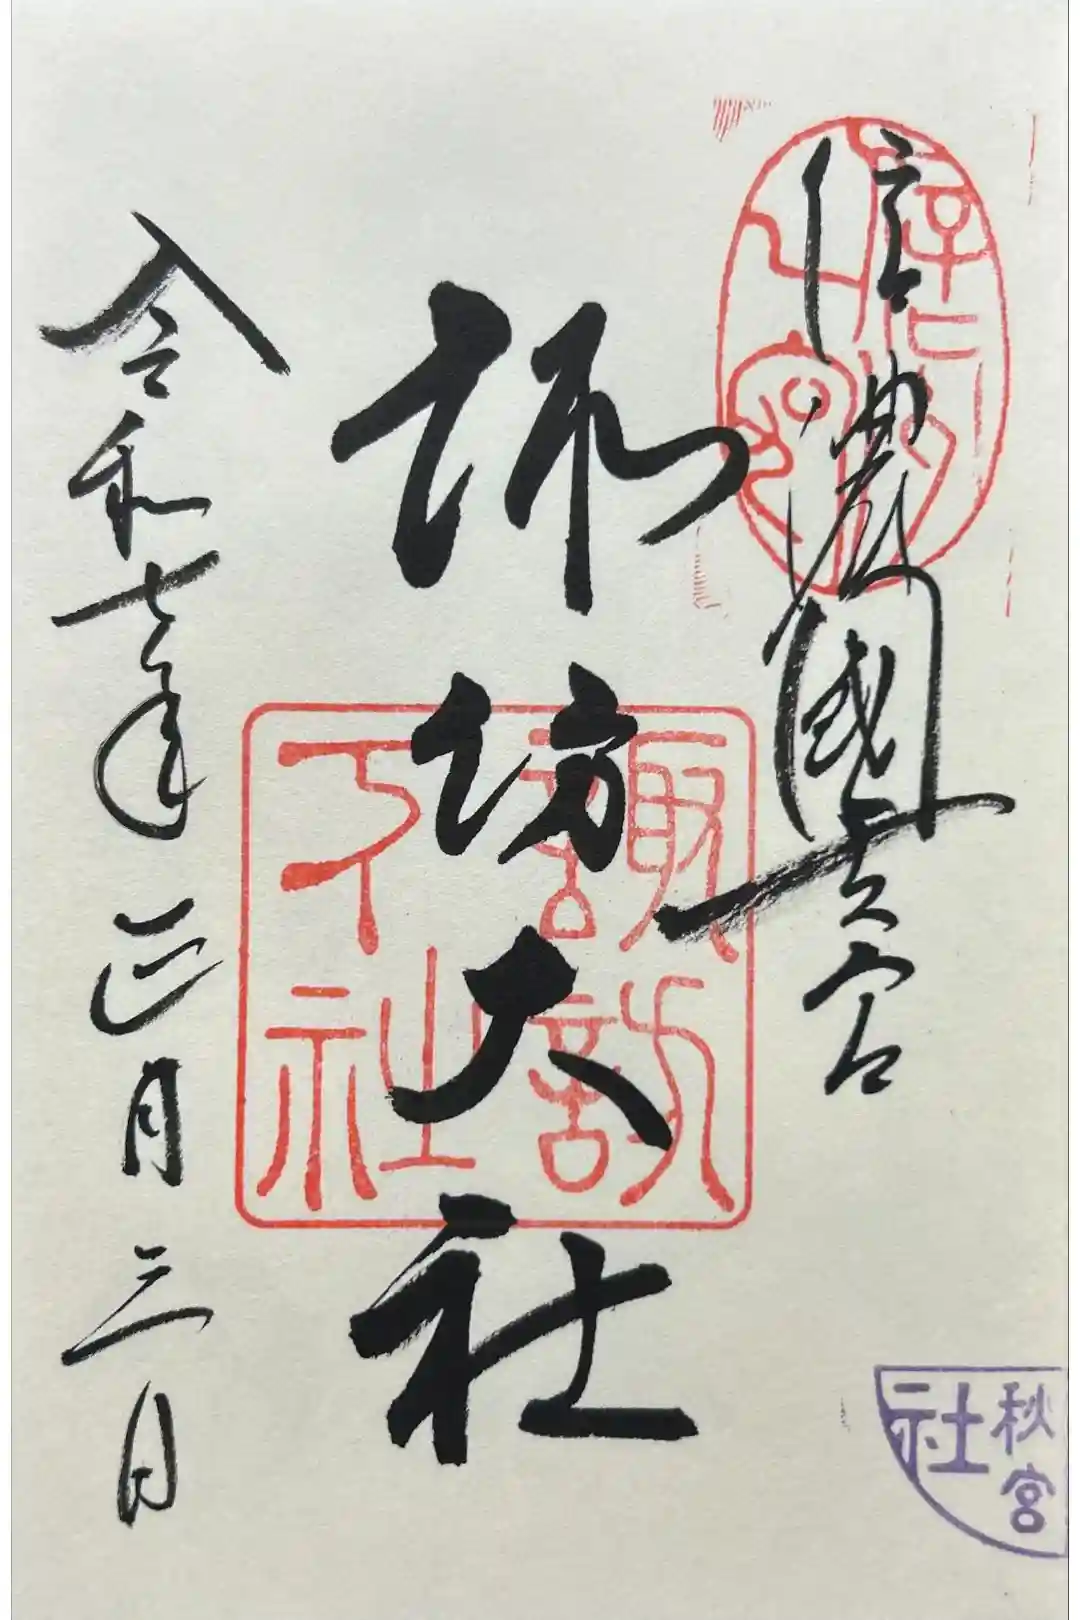 信濃國一之宮
諏訪大社
令和七年正月三日
諏訪
下社
秋宮
社